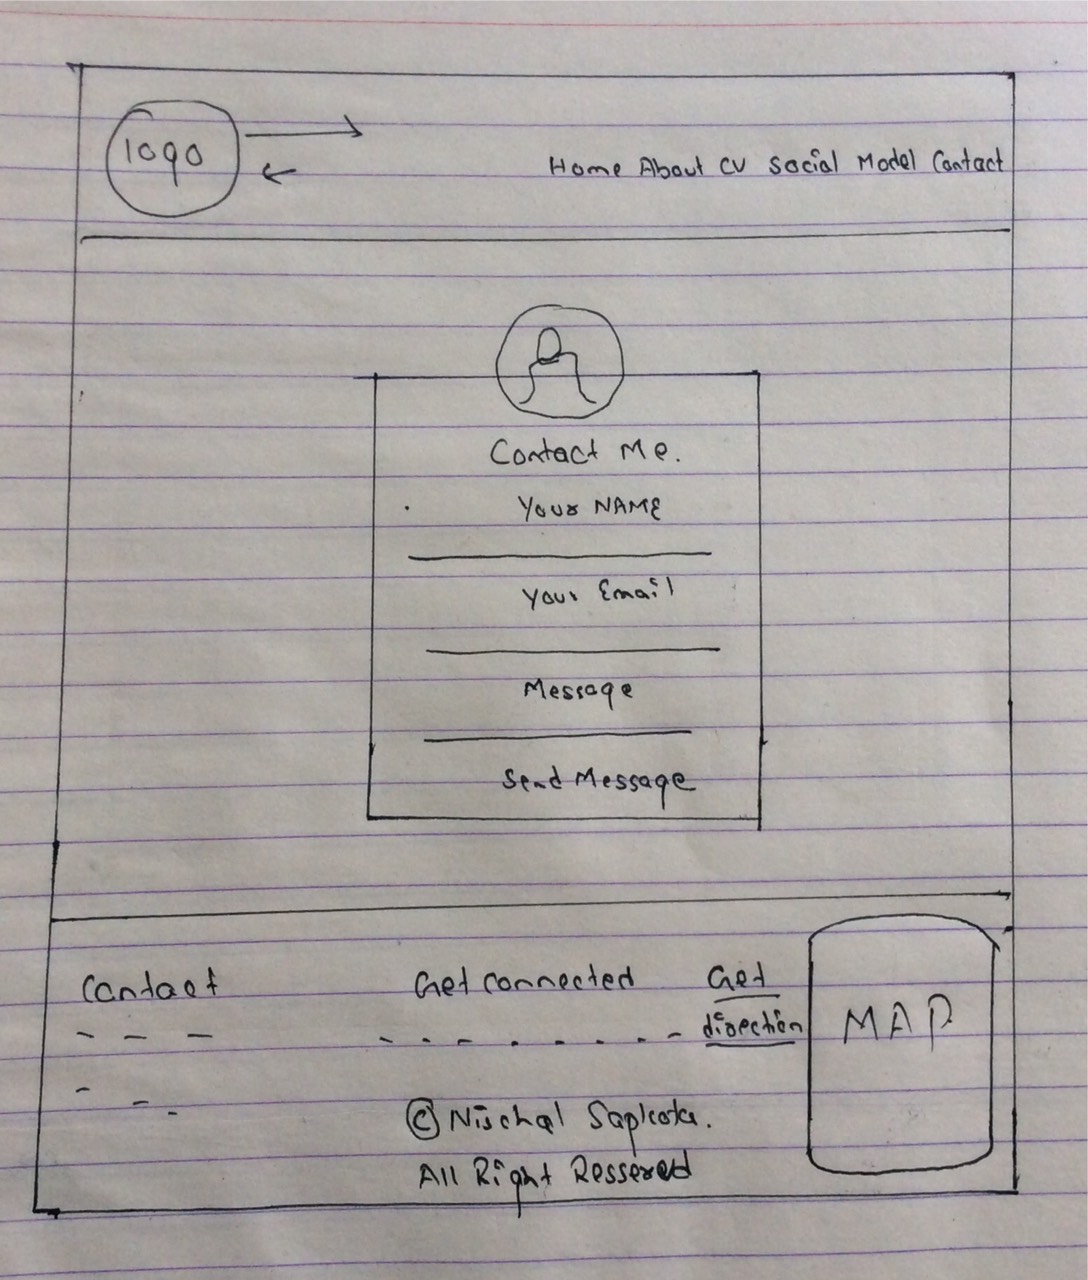 logo
Home About CV Social Model Contact
Contact Me.
Your NAME
Your Email
Message
Send Message
Contact
Get connected
Get
direction
MAP
© Nischal Sapkota.
All Right Ressered